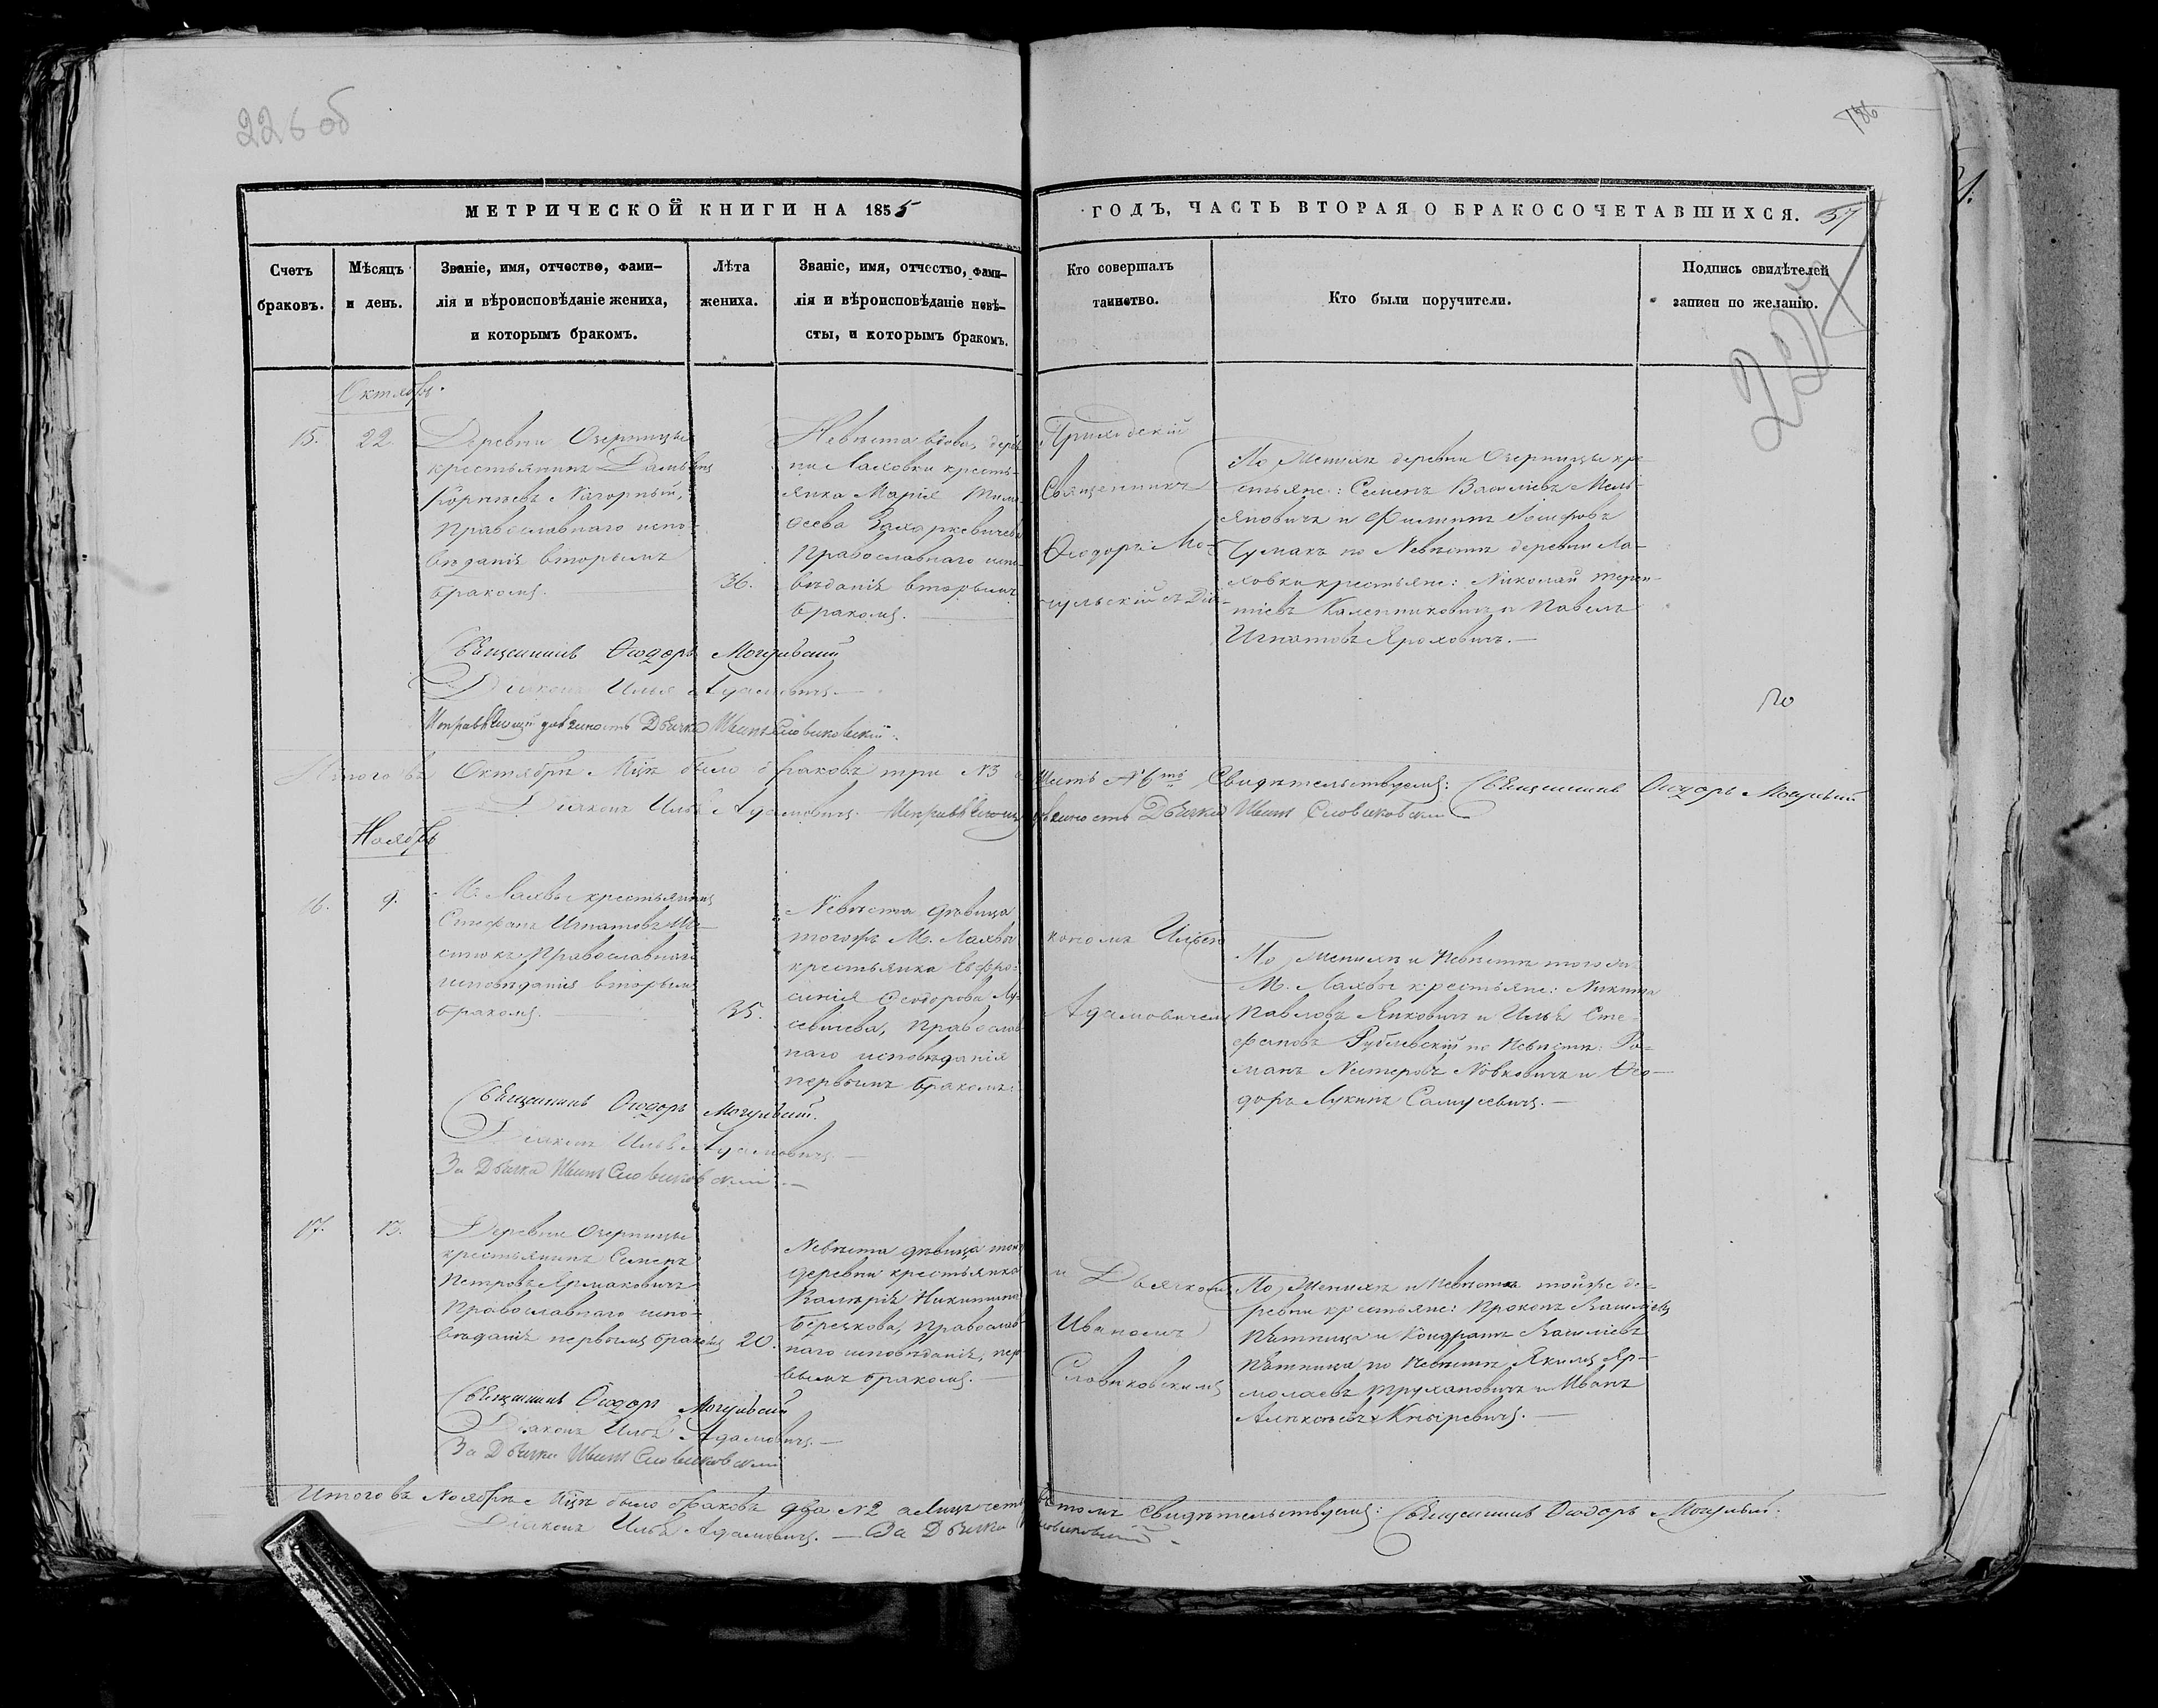 226 об
186
МЕТРИЧЕСКОЙ КНИГИ НА 1855
ГОДЪ, ЧАСТЬ ВТОРАЯ О БРАКОСОЧЕТАВШИХСЯ.
57
227
Счетъ
браковъ.
Мѣсяцъ
и день.
Званіе, имя, отчество, фами-
лія и вѣроисповѣданіе жениха,
и которымъ бракомъ.
Лѣта
жениха.
Званіе, имя, отчество, фами-
лія и вѣроисповѣданіе невѣ-
сты, и которымъ бракомъ.
Кто совершалъ
таинство.
Кто были поручители.
Подпись свидѣтелей
записи по желанію.
Октябрь.
15.
22.
Деревни Озерницы
крестьянинъ
Корнѣевъ Нагорный,
Православнаго испо-
вѣданія вторымъ
бракомъ.
36.
Невѣста вдова, дерев-
ни Лаховки кресть-
янка Марія Тимо-
ѳеева Захаркевичева
Православнаго испо-
вѣданія вторымъ
бракомъ.
Приходскій
Священникъ
Ѳеодоръ Мо-
гульскій съ Діа-
По Женихѣ деревни Озерницы кре-
стьяне: Семенъ Василіевъ Мель-
яновичъ и Филиппъ Іосифовъ
Чумакъ по Невѣстѣ деревни Ла-
ховки крестьяне: Николай Терен-
тіевъ Каленниковичъ и Павелъ
Игнатовъ Яроховичъ.
Священникъ Ѳеодоръ Могульскій
Діаконъ Илья Адамовичъ.
Исправляющій должность Дьячка Иванъ Словиковскій.
Итого въ Октябрѣ М‑цѣ было браковъ три №3 а
лицъ шесть №6ть Свидѣтельствуемъ: Священникъ Ѳеодоръ Могульскій
Діаконъ Илья Адамовичъ. Исправляющій должность Дьячка Иванъ Словиковскій
Ноябрь
16.
9.
М. Лахвы крестьянинъ
Стефанъ Игнатовъ
Православнаго
исповѣданія вторымъ
бракомъ.
35.
Невѣста дѣвица
тогожъ М. Лахвы
крестьянка Евфро-
синія Ѳеодорова
Православ-
наго исповѣданія
первымъ бракомъ.
кономъ Ильею
Адамовичемъ
По Женихѣ и Невѣстѣ того же
М. Лахвы крестьяне: Никита
Павловъ Янковичъ и Илья Сте-
фановъ Рублевскій по Невѣстѣ: Ро-
манъ Нестеровъ Новковичъ и Ѳео-
доръ Лукинъ Самусевичъ.
Священникъ Ѳеодоръ Могульскій.
Діаконъ Илья Адамовичъ.
За Дьячка Иванъ Словиковскій.
17.
13.
Деревни Озерницы
крестьянинъ Семенъ
Петровъ Ярмаковичъ
Православнаго испо-
вѣданія первымъ бракомъ
20.
Невѣста дѣвица тойже
деревни крестьянка
Валерія Никитина
Православ-
наго исповѣданія, пер-
вымъ бракомъ.
и Дьячкомъ
Иваномъ
Словиковскимъ
По Женихѣ и Невѣстѣ тойже де-
ревни крестьяне: Прокопъ Василіевъ
Пѣтница и Кондратъ Василіевъ
Пѣтница по Невѣстѣ Якимъ Яр-
молаевъ Трухановичъ и Иванъ
Священникъ Ѳеодоръ Могульскій
Діаконъ Илья Адамовичъ.
За Дьячка Иванъ Словиковскій
Итого въ Ноябрѣ М‑цѣ было браковъ два №2 а лицъ четыре въ томъ свидѣтельствуемъ: Священникъ Ѳеодоръ Могульскій.
Діаконъ Илья Адамовичъ. За Дьячка Словиковскій